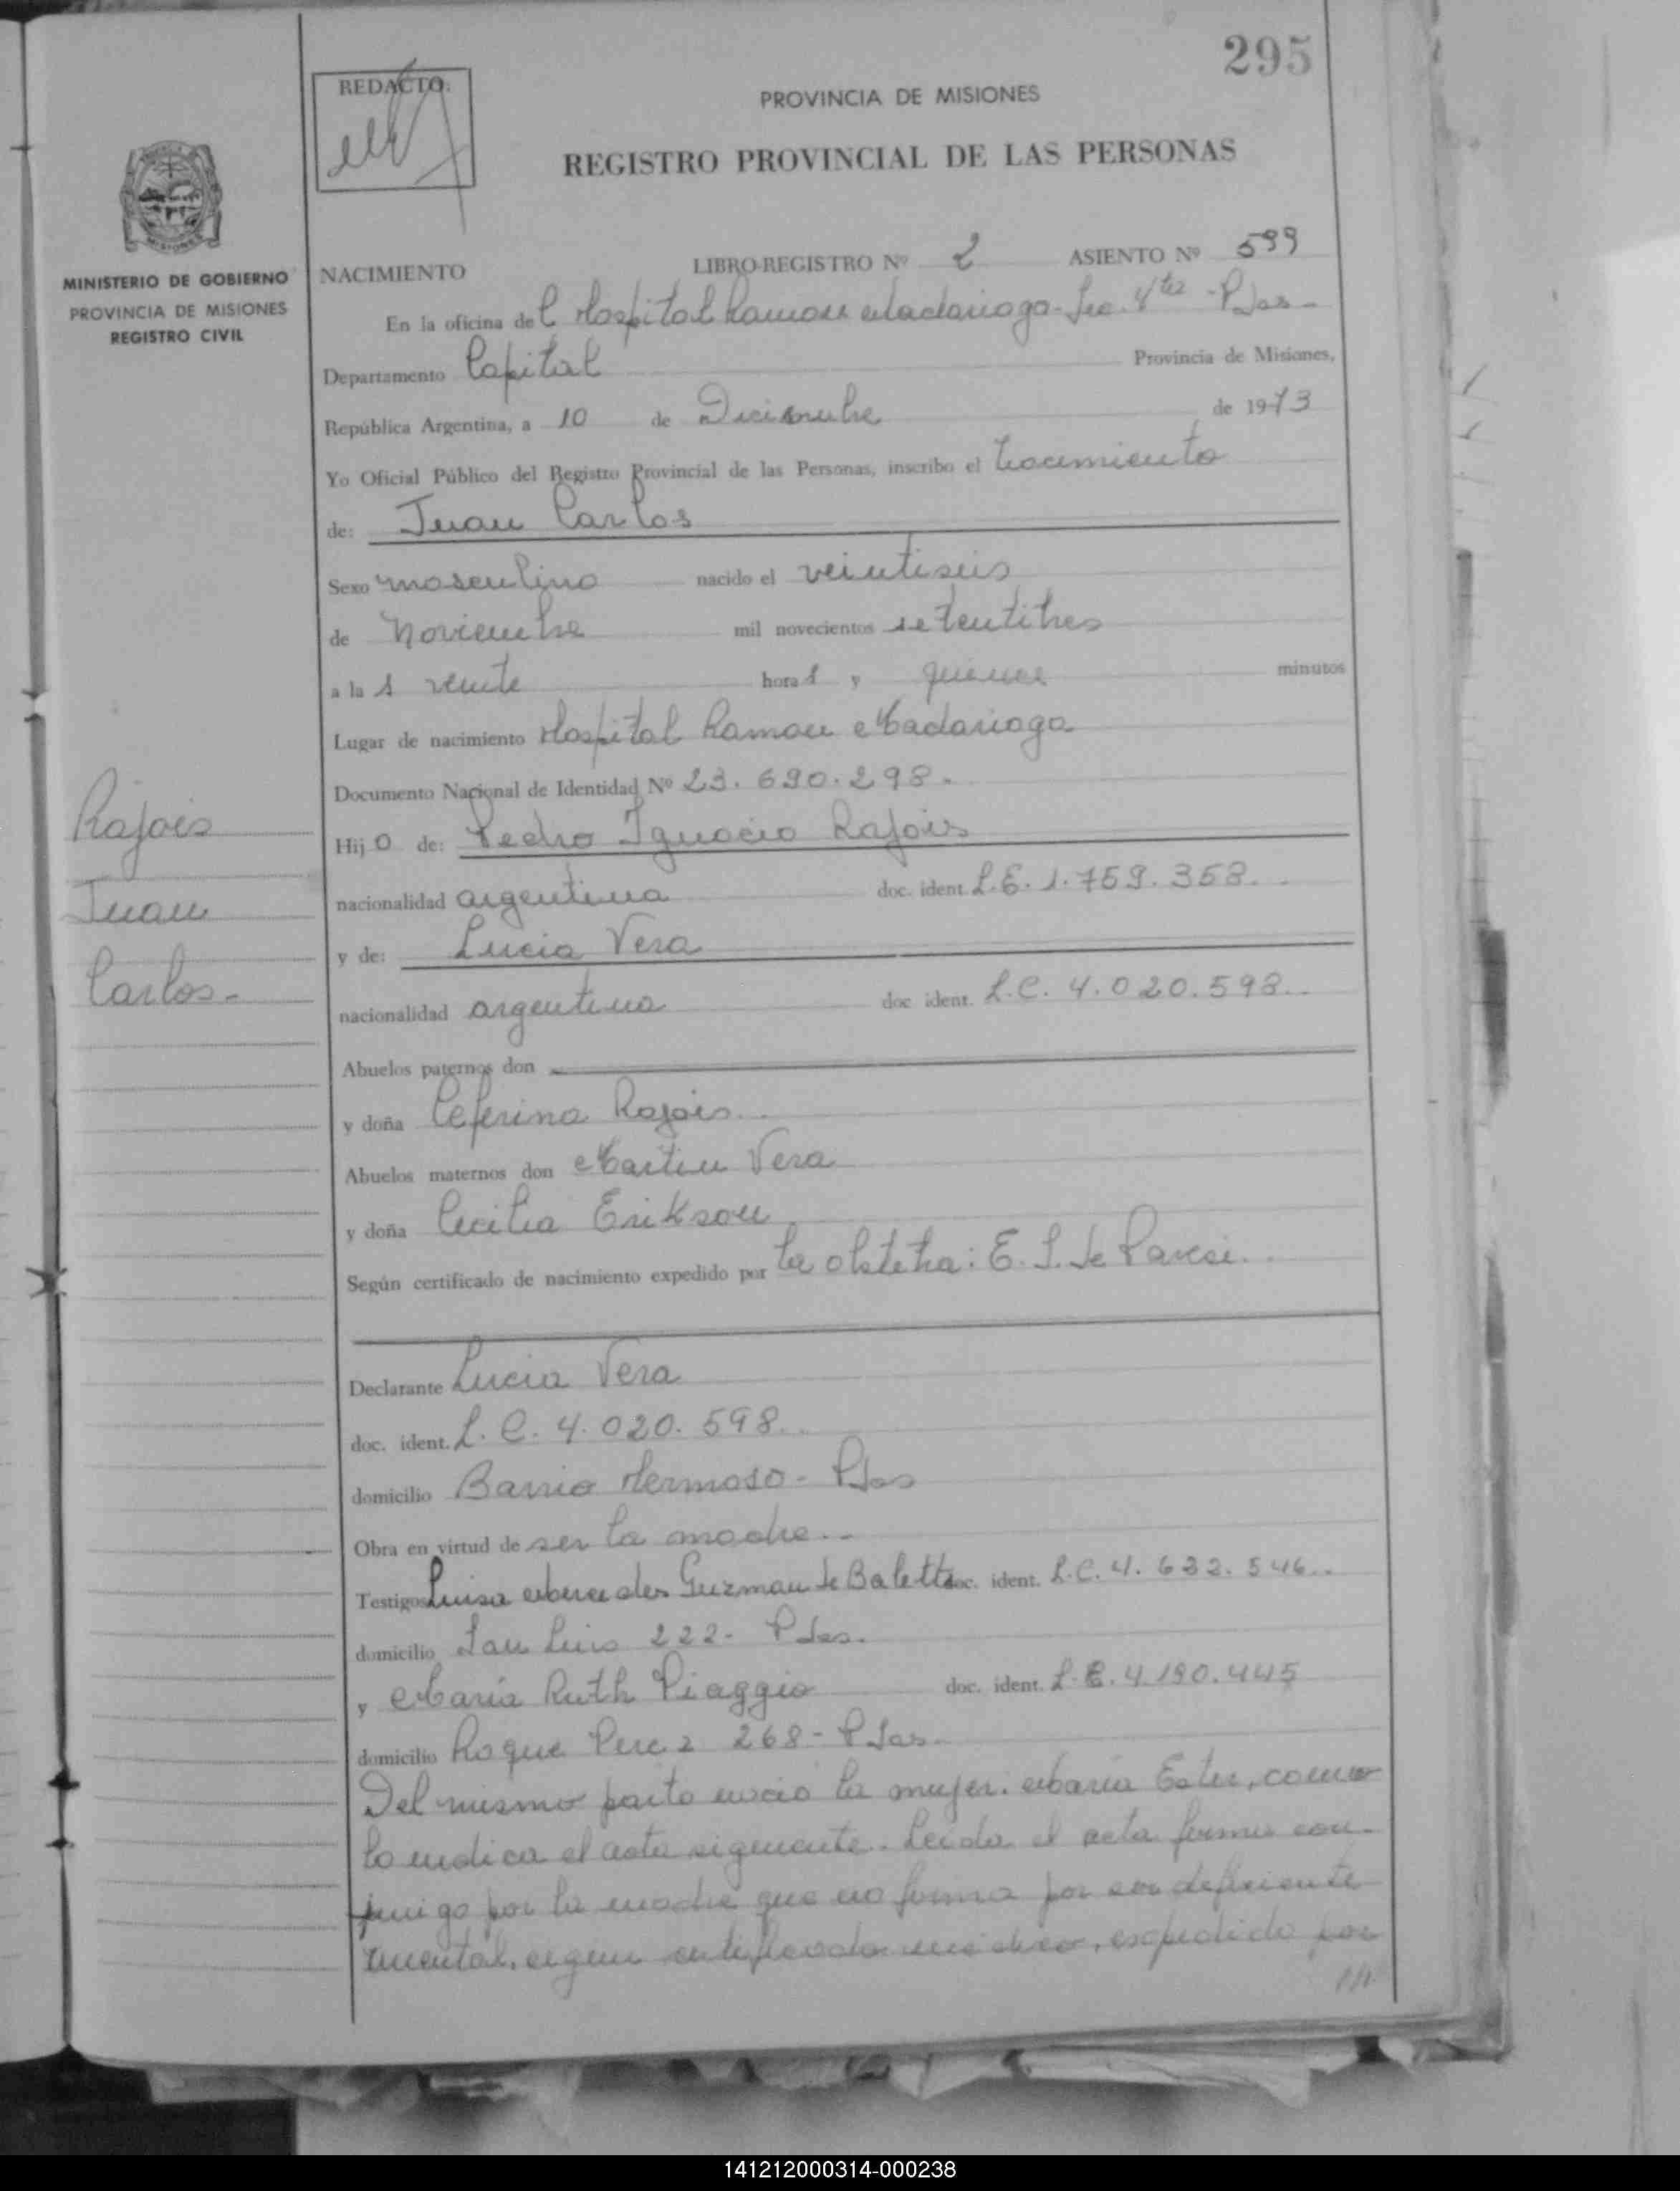 295
REDACTO:
PROVINCIA DE MISIONES
REGISTRO PROVINCIAL DE LAS PERSONAS
MINISTERIO DE GOBIERNO
PROVINCIA DE MISIONES
REGISTRO CIVIL
NACIMIENTO LIBRO-REGISTRO Nº 2 ASIENTO Nº 599
En la oficina del Hospital Ramon Madariaga - Sec. 4ta - Pdas -
Departamento Capital Provincia de Misiones,
República Argentina, a 10 de Diciembre de 1973
Yo Oficial Público del Registro Provincial de las Personas, inscribo el nacimiento
de: Juan Carlos
Sexo masculino nacido el veintiseis
de noviembre mil novecientos setentitres
a las veinte horas y quince minutos
Lugar de nacimiento Hospital Ramon Madariaga
Documento Nacional de Identidad Nº 23.690.298.
Rajois
Juan
Carlos -
Hijo de: Pedro Ignacio Rajois
nacionalidad argentina doc. ident. L.E. 1.759.358.
y de: Lucia Vera
nacionalidad argentina doc. ident. L.C. 4.020.598..
Abuelos paternos don
y doña Ceferina Rajois..
Abuelos maternos don Martin Vera
y doña Cecilia Erikson
Según certificado de nacimiento expedido por la obstetra: E. S. de Paresi..
Declarante Lucia Vera
doc. ident. L. C. 4.020.598..
domicilio Barrio Hermoso - Pdas
Obra en virtud de ser la madre..
Testigos Luisa Mercedes Guzman de Baletto doc. ident. L.C. 4.632.546..
domicilio San Luis 222 - Pdas.
y Maria Ruth Piaggio doc. ident. L.C. 4.190.445
domicilio Roque Perez 268 - Pdas.
Del mismo parto nacio la mujer: Maria Ester, como
lo indica el acta siguiente. Leida el acta firma con-
migo por la madre que no firma por ser deficiente
mental, segun certificado medico, expedido por
///
141212000314-000238